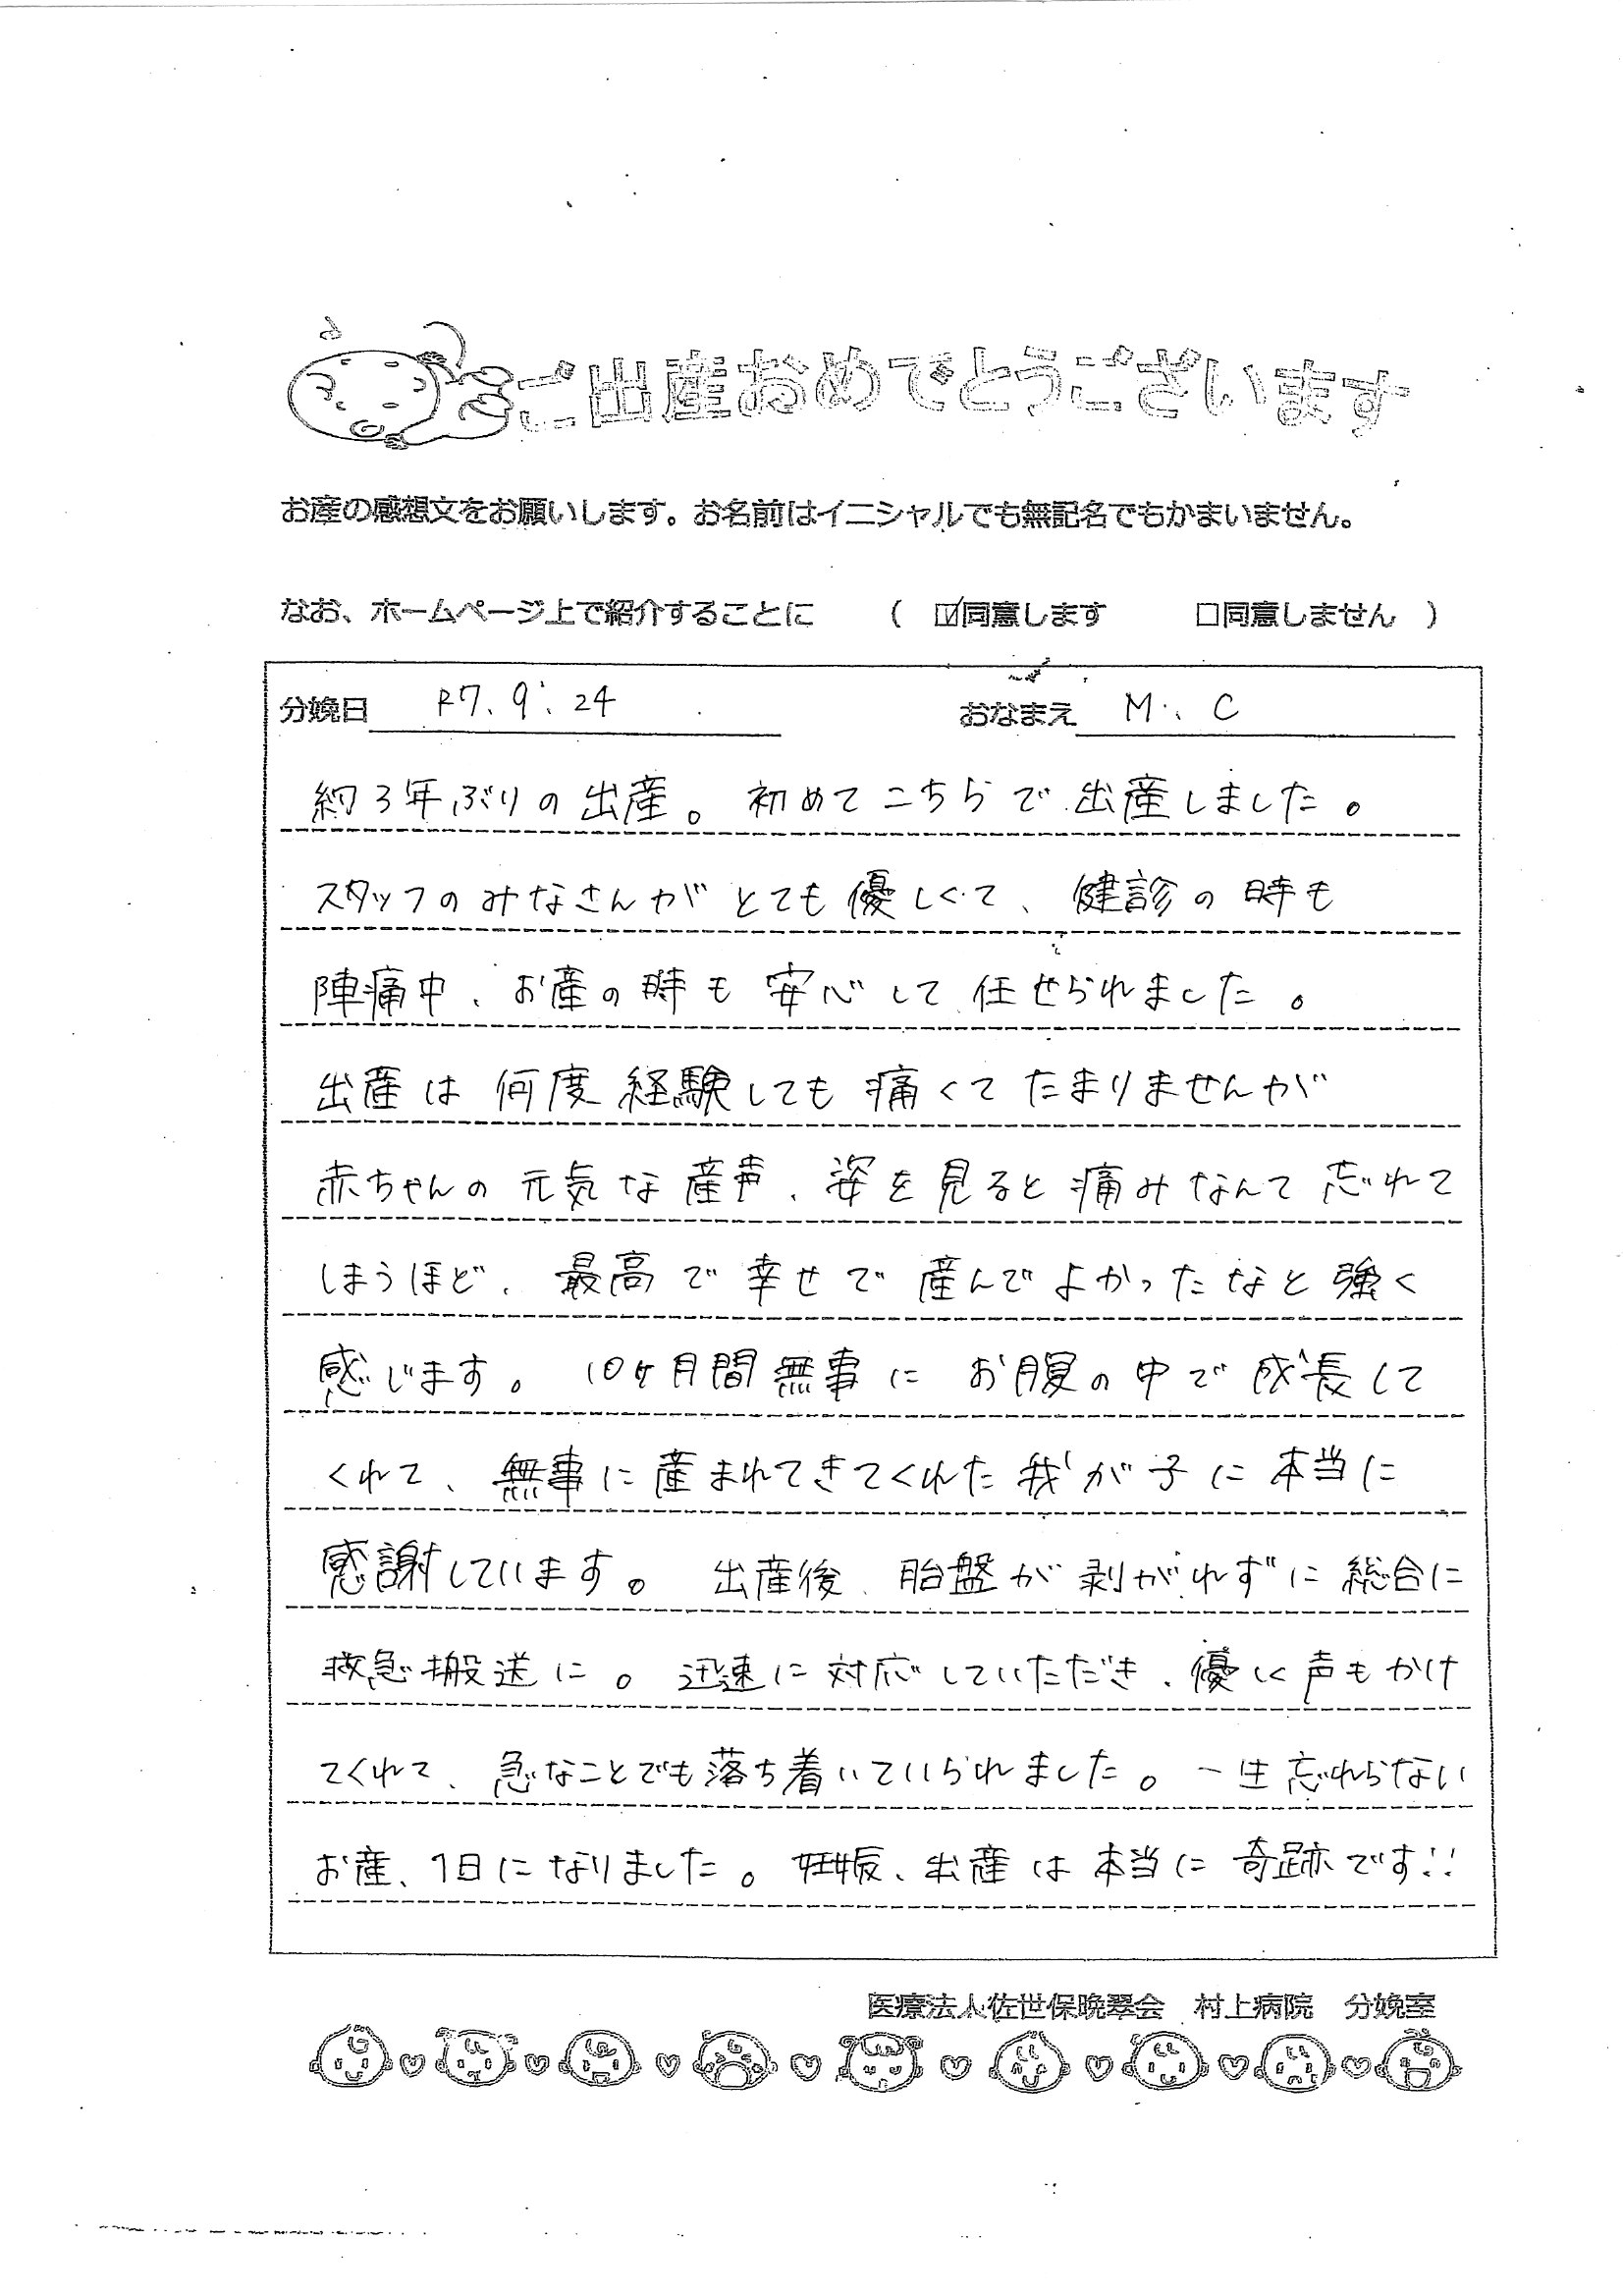 ご出産おめでとうございます
お産の感想文をお願いします。お名前はイニシャルでも無記名でもかまいません。
なお、ホームページ上で紹介することに （ ☑同意します □同意しません ）
分娩日 R7.9.24 おなまえ M.C
約3年ぶりの出産。初めてこちらで出産しました。
スタッフのみなさんがとても優しくて、健診の時も
陣痛中、お産の時も安心して任せられました。
出産は何度経験しても痛くてたまりませんが
赤ちゃんの元気な産声、姿を見ると痛みなんて忘れて
しまうほど、最高で幸せで産んでよかったなと強く
感じます。10ヶ月間無事にお腹の中で成長して
くれて、無事に産まれてきてくれた我が子に本当に
感謝しています。出産後、胎盤が剥がれずに総合に
救急搬送に。迅速に対応していただき、優しく声もかけ
てくれて、急なことでも落ち着いていられました。一生忘れらない
お産、1日になりました。妊娠、出産は本当に奇跡です!!
医療法人佐世保晩翠会 村上病院 分娩室